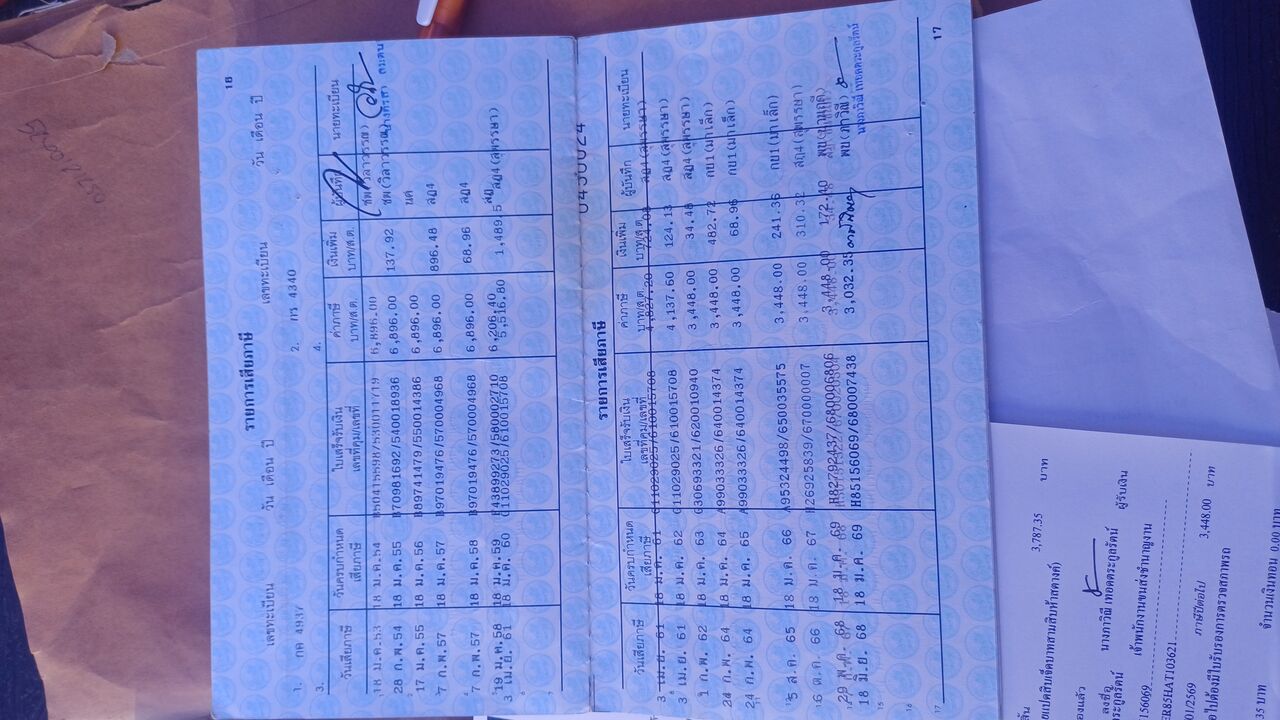 18
รายการเสียภาษี
เลขทะเบียน วัน เดือน ปี เลขทะเบียน วัน เดือน ปี
1. กค 4937 2. กร 4340
3. 4.
วันเสียภาษี วันครบกำหนดเสียภาษี ใบเสร็จรับเงิน เลขที่คุม/เลขที่ ค่าภาษี บาท/ส.ต. เงินเพิ่ม บาท/ส.ต. ผู้บันทึก นายทะเบียน
18 ม.ค.53 18 ม.ค.54 6,896.00
28 ก.พ.54 18 ม.ค.55 B70981692/540016936 6,896.00 137.92
17 ม.ค.55 18 ม.ค.56 B89741479/550014386 6,896.00 นค
7 ก.พ.57 18 ม.ค.57 B97019476/570004968 6,896.00 896.48 สฎ4
7 ก.พ.57 18 ม.ค.58 B97019476/570004968 6,896.00 68.96 สฎ4
19 ม.ค.58 18 ม.ค.59 6,206.40 สฎ
3 เม.ย. 61 18 ม.ค. 60 G11029025/610015708 5,516.80 1,489.5 สฎ4(สุพรรษา)
0430024
17
รายการเสียภาษี
วันเสียภาษี วันครบกำหนดเสียภาษี ใบเสร็จรับเงิน เลขที่คุม/เลขที่ ค่าภาษี บาท/ส.ต. เงินเพิ่ม บาท/ส.ต. ผู้บันทึก นายทะเบียน
3 เม.ย. 61 18 ม.ค. 61 G11029025/610015708 4,827.20 สฎ4(สุพรรษา)
3 เม.ย. 61 18 ม.ค. 62 G11029025/610015708 4,137.60 124.13 สฎ4(สุพรรษา)
1 ก.พ. 62 18 ม.ค. 63 G30693321/620010940 3,448.00 34.48 สฎ4(สุพรรษา)
24 ก.พ. 64 18 ม.ค. 64 A99033326/640014374 3,448.00 482.72 กบ1(มาเล็ก)
24 ก.พ. 64 18 ม.ค. 65 A99033326/640014374 3,448.00 68.96 กบ1(มาเล็ก)
5 ส.ค. 65 18 ม.ค. 66 A95324498/650035575 3,448.00 241.36 กบ1(มาเล็ก)
6 ต.ค. 66 18 ม.ค. 67 H26925839/670000007 3,448.00 310.32 สฎ4(สุพรรษา)
29 พ.ค. 68 18 ม.ค. 69 H82792437/680006806 3,448.00 172.40
18 มิ.ย. 68 18 ม.ค. 69 H85156069/680007438 3,032.35 พบ(ภาวิณี)
นางภาวิณี เทอดตระกูลรัตน์
3,787.35 บาท
นางภาวิณี เทอดตระกูลรัตน์ ผู้รับเงิน
เจ้าพนักงานขนส่งชำนาญงาน
156069
ER85HAT103621
01/2569 ภาษีปีต่อไป 3,448.00 บาท
ไปต้องมีใบรับรองการตรวจสภาพรถ
35 บาท จำนวนเงินทอน 0.00 บาท